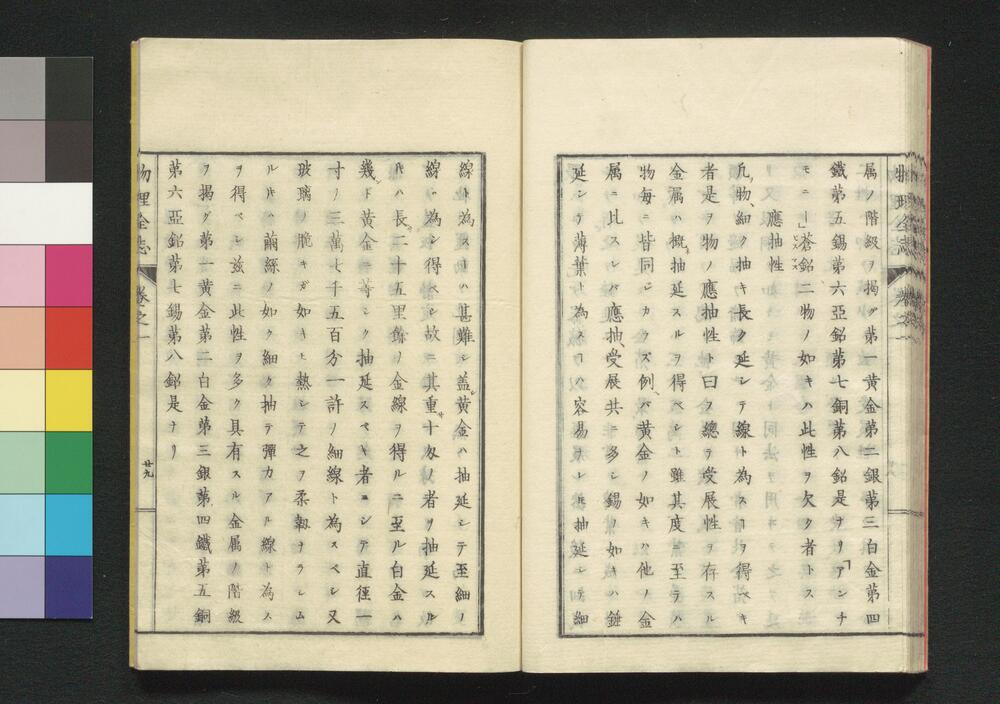 属ノ階級ヲ掲グ第一黄金第二銀第三白金第四
鐵第五錫第六亞鉛第七銅第八鉛是ナリ「アンチ
モニー」蒼鉛二物ノ如キハ此性ヲ欠ク者トス
應抽性
凡物、細ク抽キ長ク延シテ線ト為スヿヲ得ベキ
者是ヲ物ノ應抽性ト曰フ總テ受展性ヲ存スル
金属ハ概抽延スルヲ得ベシト雖其度ニ至テハ
物毎ニ皆同ジカラズ例バ黄金ノ如キハ他ノ金
属ニ比スレバ應抽、受展共ニ多シ錫ノ如キハ鎚
延シテ薄葉ト為スヿハ容易ナレ𪜈抽延シテ細
線ト為スヿハ甚難シ盖黄金ハ抽延シテ至細ノ
線ト為シ得ベシ故ニ其重十匁ノ者ヲ抽延スル
𪜈ハ長二十五里餘ノ金線ヲ得ルニ至ル白金ハ
幾ド黄金ニ等シク抽延スベキ者ニシテ直徑一
寸ノ三萬七千五百分一許ノ細線ト為スベシ又
玻璃ノ脆キガ如キモ熱シテ之ヲ柔靱ナラシム
ル𪜈ハ繭絲ノ如ク細ク抽テ彈力アル線ト為ス
ヲ得ベシ茲ニ此性ヲ多ク具有スル金属ノ階級
ヲ掲グ第一黄金第二白金第三銀第四鐵第五銅
第六亞鉛第七錫第八鉛是ナリ
物理全志
卷之一
廿九